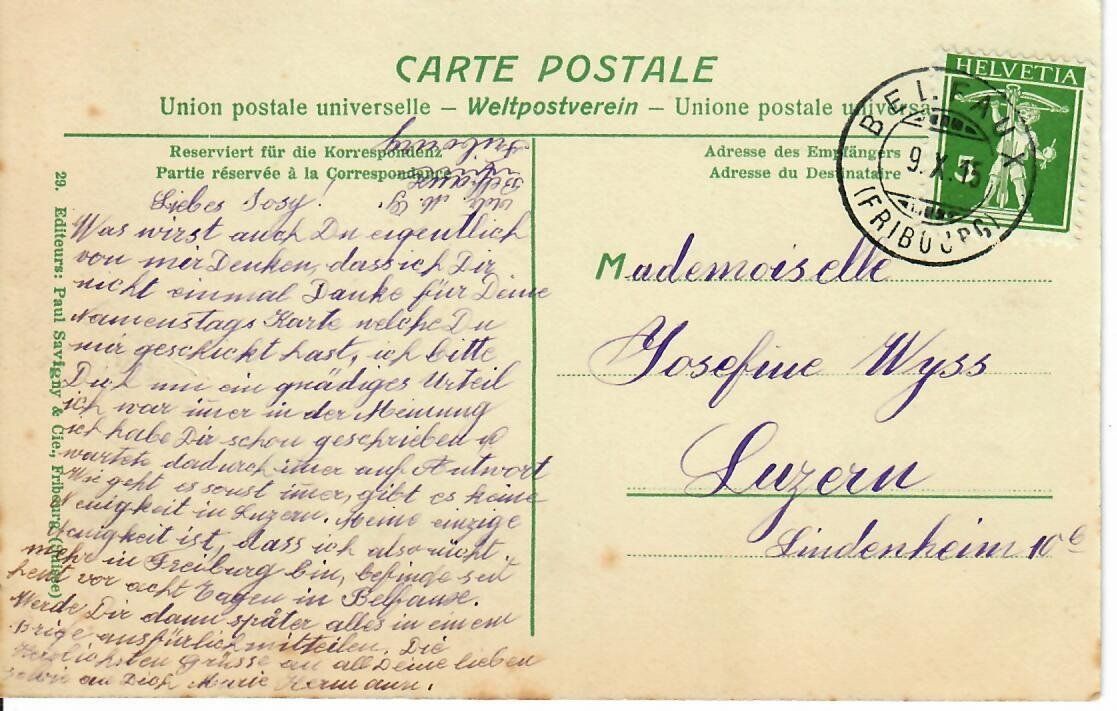 CARTE POSTALE
Union postale universelle – Weltpostverein – Unione postale universa
Reserviert für die Korrespondenz
Partie réservée à la Correspondance
Adresse des Empfängers
Adresse du Destinataire
HELVETIA
5
BELFAUX
9.X.15
(FRIBOURG)
29. Editeurs: Paul Savigny & Cie., Fribourg (Suisse)
Liebes Josy!
Was wirst auch Du eigentlich
von mir Denken, dass ich Dir
nicht einmal Danke für Deine
Namenstags Karte welche Du
mir geschickt hast, ich bitte
Dich um ein gnädiges Urteil
ich war im̄er in der Meinung
ich habe Dir schon geschrieben u
wartete dadurch im̄er auf Antwort
Wie geht es sonst im̄er, gibt es keine
Neuigkeit in Luzern. Meine einzige
Neuigkeit ist, dass ich also nicht
mehr in Freiburg bin, befinde seit
heut vor acht Tagen in Belfaux.
Werde Dir dann später alles in einem
Brige ausfürlich mitteilen. Die
Herzlichsten Grüsse an all Deine lieben
sowie an Dich Marie Hermann.
Mademoiselle
Josefine Wyss
Luzern
Lindenheim 10